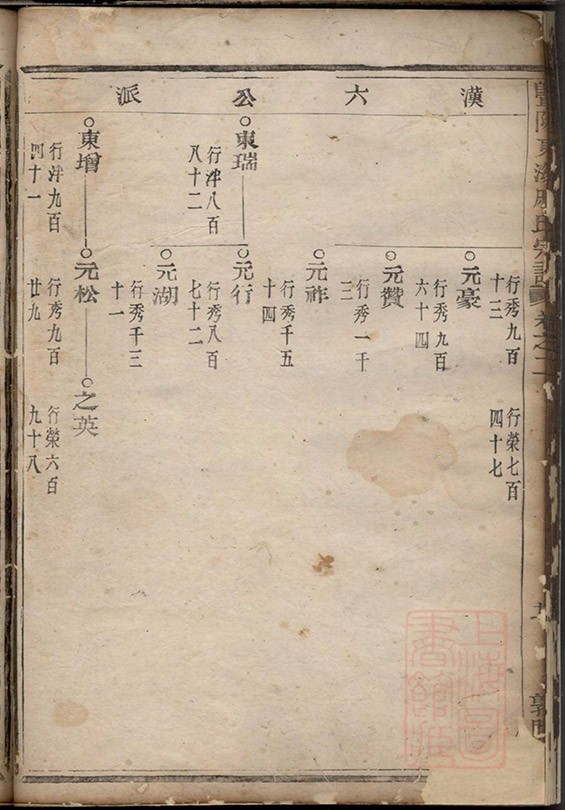 東海滕氏宗譜 卷之二
漢六公派
行秀九百十三
行榮七百四十七
元豪
行秀九百六十四
元贊
行秀一千三
元祚
行秀千五十四
東瑞
行洋八百八十二
元行
行秀八百七十二
元湖
行秀千三十一
東增
行洋九百四十一
元松
行秀九百廿九
之英
行榮六百九十八
上海圖書館藏